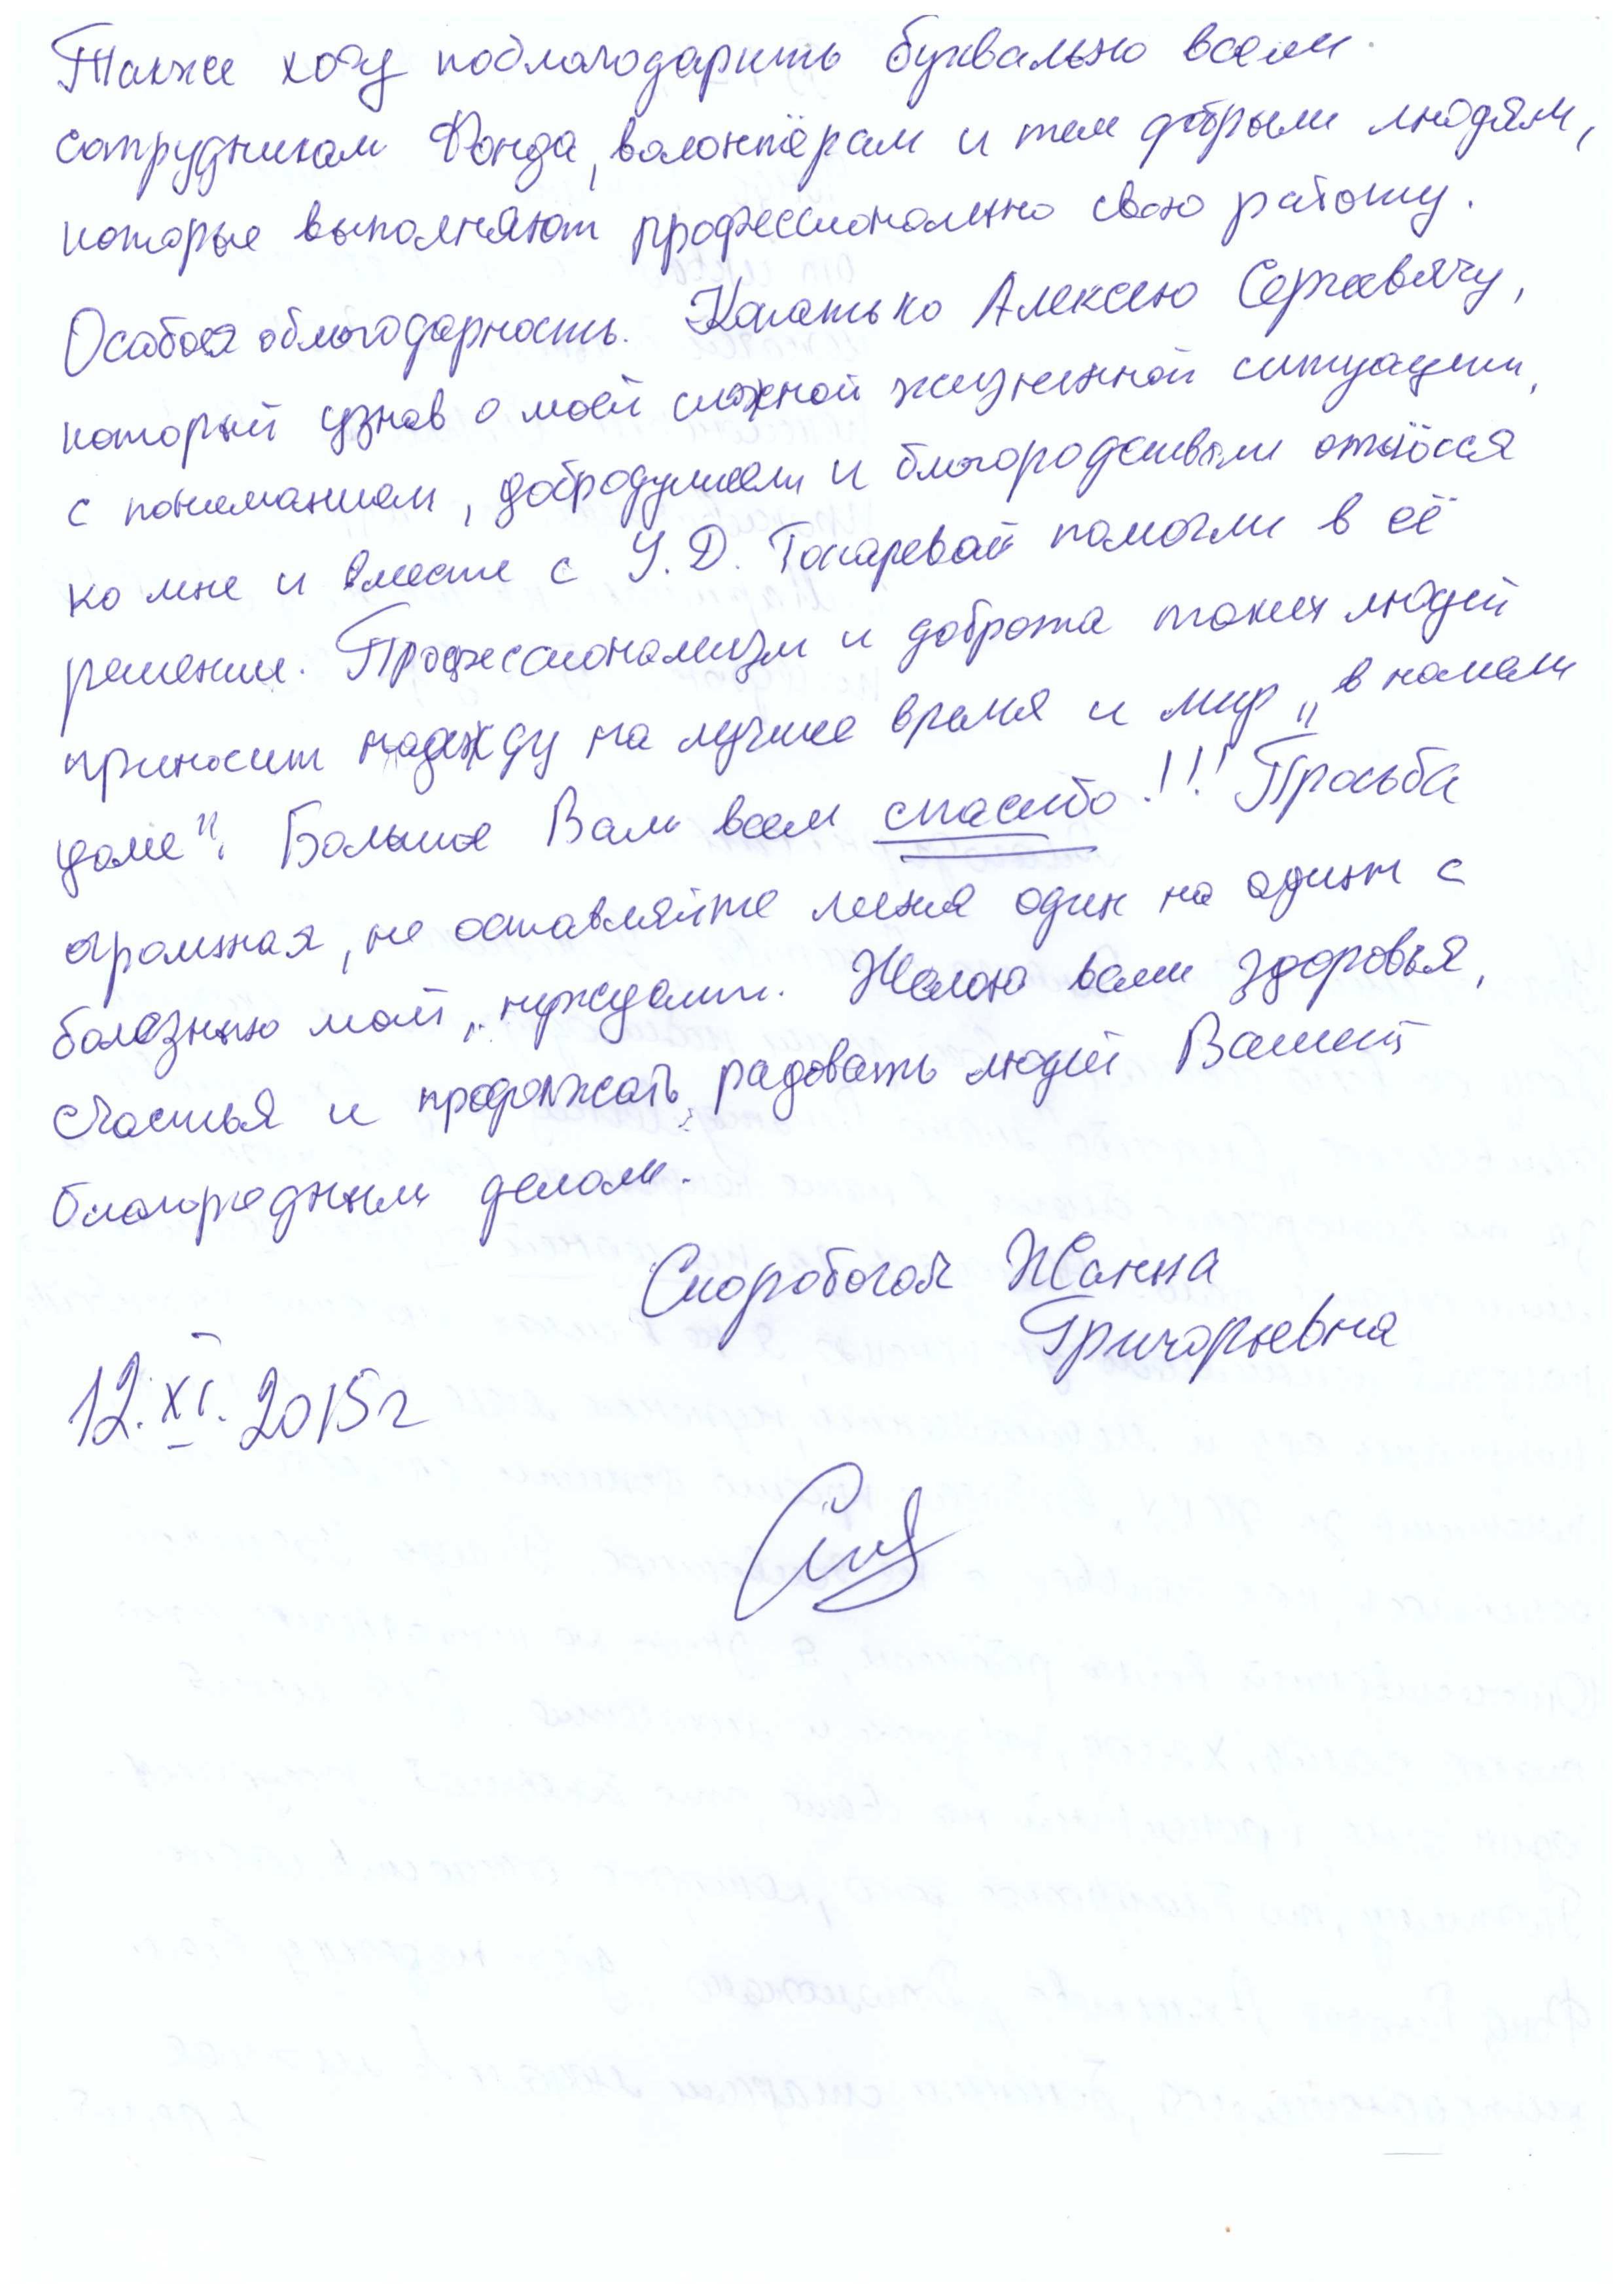 Также хочу поблагодарить буквально всем
сотрудникам Фонда, волонтёрам и тем добрым людям,
которые выполняют профессионально свою работу.
Особая благодарность. Алексею Сергеевичу,
который узнав о моей сложной жизненной ситуации,
с пониманием, добродушием и отнёсся
ко мне и вместе с У. Д. Токаревой помогли в её
решении. Профессионализм и доброта таких людей
приносит надежду на лучшее время и мир „в нашем
доме". Большое Вам всем спасибо!!! Просьба
огромная, не оставляйте меня один на один с
болезнью моей, нуждами. Желаю вам здоровья,
счастья и продолжать радовать людей Вашей
благородным делом.
Скоробогач Жанна
Григорьевна
12.XI.2015г